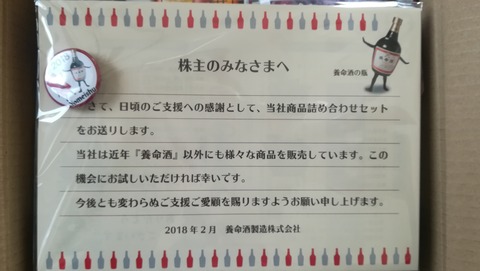 株主のみなさまへ
養命酒の瓶
て、日頃のご支援への感謝として、当社商品詰め合わせセット
をお送りします。
当社は近年『養命酒』以外にも様々な商品を販売しています。この
機会にお試しいただければ幸いです。
今後とも変わらぬご支援ご愛顧を賜りますようお願い申し上げます。
2018年2月　養命酒製造株式会社